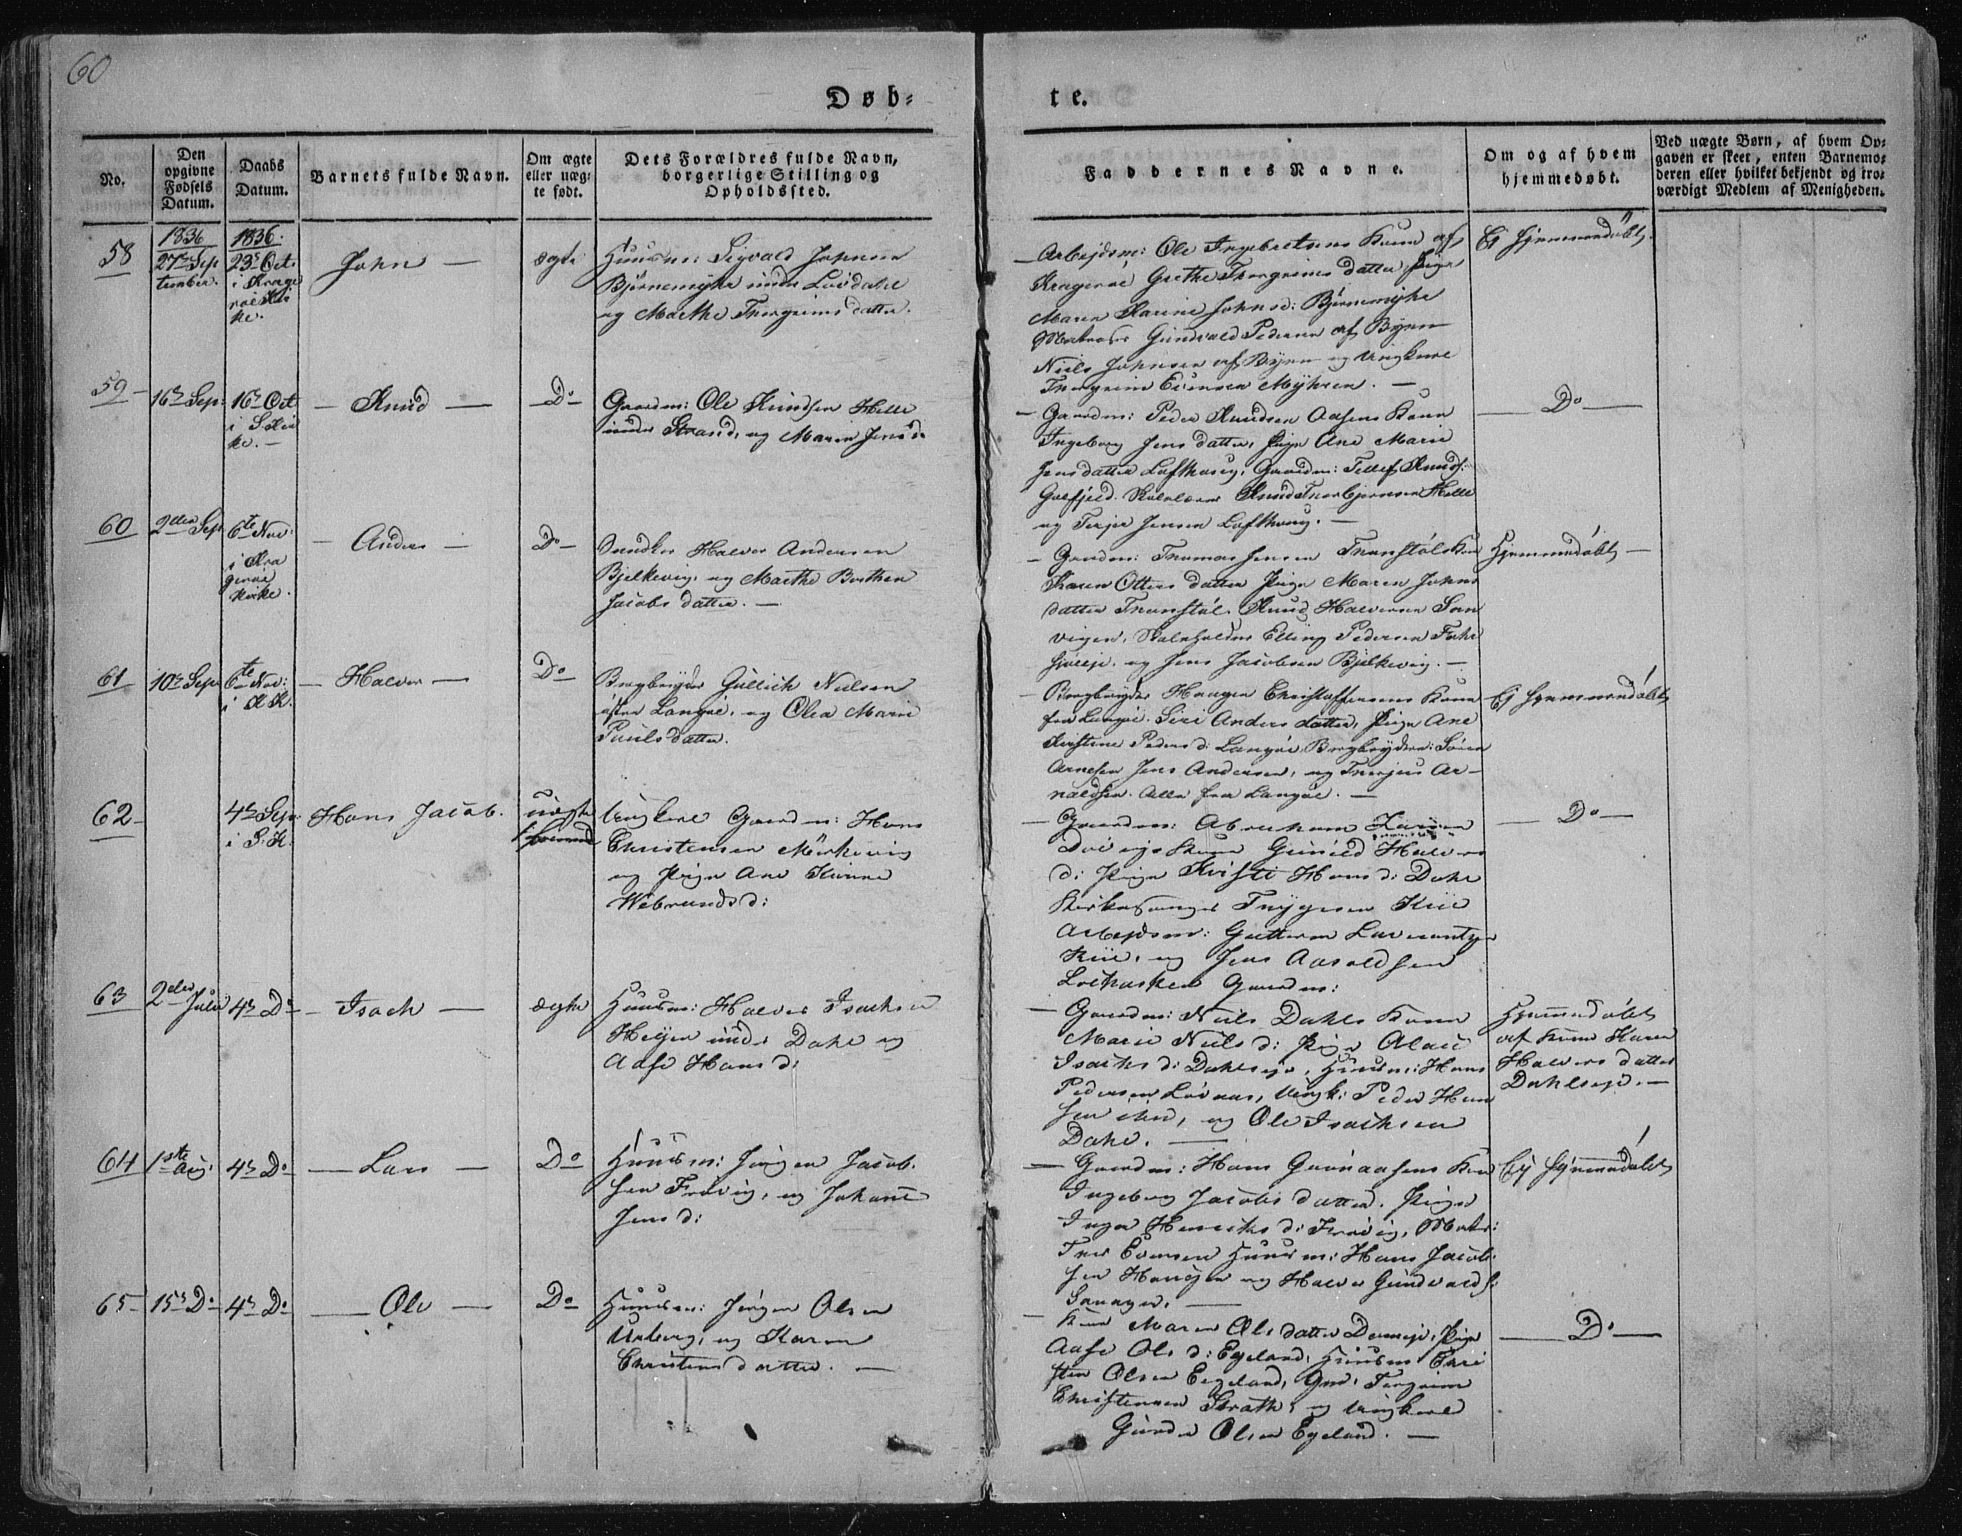 60
Døb-
te.
No.
Den opgivne Fødsels Datum.
Daabs Datum.
Barnets fulde Navn.
Om ægte eller uægte født.
Dets Forældres fulde Navn, borgerlige Stilling og Opholdssted.
Faddernes Navne.
Om og af hvem hjemmedøbt.
Ved uægte Børn, af hvem Opgaven er skeet, enten Barnemoderen eller hvilket bekjendt og troværdigt Medlem af Menigheden.
58
1836
27de Sep
tember.
1836.
23de Oct.
i Krage
røe Kir
ke.
John —
ægte
Huusm: Sigvald Johnsen
Bjørnemyhr under Løvdahl
og Marthe Thorgrimsdatter.
— Arbejdsm: Ole Ingebretsens Kone af
Kragerøe Grethe Thorgrimsdatter, Pige
Maren Karine Johnsd: Bjørnemyhr
Matros Gundvald Pedersen af Byen
Niels Johnsen af Byen og Ungkarl
Thorgrim Evensen Myhren. —
Ej hjemmedöbt.
59 —
16de Sep.
16de Oct
i S. Kir
ke. —
— Knud —
Do
Gaardm: Ole Knudsen Helle
under Strand, og Maren Jensd.
— Gaardm: Peder Knudsen Aasens Kone
Ingeborg Jensdatter, Pige Ane Marie
Jensdatter Lofthaug, Gaardm: Tellef Knuds:
Skolelærer Knud Thorbjørnsen Helle
og Terje Jensen Lofthaug. —
— Do —
60
2den Sep
6te Nov:
i Kra
gerøe
Kirke.
— Anders —
Do
Halvor Andersen
Bjelkevig, og Marthe Berthea
Jacobsdatter. —
— Gaardm: Thomas Jensen Thonstöls Kone
Karen Ottersdatter Pige Maren Johns
datter Thonstöl. Knud Halvorsen San
vigen, Skoleholder Elling Pedersen
og Jens Jacobsen Bjelkevig. —
Hjemmedöbt —
61
10de Sep
6te Nov:
i K K.
— Halvor —
Do
Bergbryder Gullich Nielsen
Langøe, og Olea Marie
Paulsdatter.
— Bergbryder Haagen Christoffersens Kone
fra Langøe. Siri Andersdatter, Pige Ane
Kirstine Pedersd: Langøe, Bergbryderne: Sören
Arnesen Jens Andersen, og Terjus Ar-
noldsen. Alle fra Langøe. —
Ej hjemmedöbt
62 —
4de Sep:
i S. K.
Hans Jacob.
uægte
Ungkarl Gaardm: Hans
Christensen Mörkevig
og Pige Ane Kirine
Webrundsd:
— Gaardm: Abraham Larsen
Kone Gunild Halvors
d: Pige Kirsti Hansd: Dahl
Kirkesanger Thygesen Kiil
Arbejdsm: Guttorm Laurantzen
Kiil, og Jens Aaroldsen
Gaardm:
— Do —
63
2den
Julii
4de Do
— Isach —
ægte
Huusm: Halvor Isachsen
Hejen under Dahl og
Aase Hansd:
— Gaardm: Niels Dahls Kone
Marie Nielsd: Pige
Isachsd: Dahlseje, Huusm: Hans
Pedersen Løvaas, Ungk: Peder Han
sen ibid, og Ole Isachsen
Dahl. —
Hjemmedöbt
af Kone Karen
Halvorsdatter
Dahlseje. —
64
1ste
Aug.
4de Do
— Lars —
Do
Huusm: Jörgen Jacob
sen Frövig, og Johane
Jensd:
— Gaardm: Hans Gunnarsens Kone
Ingeborg Jacobsdatter. Pige
Inger Henriksd: Frövig, Matr:
Thor Evensen Huusm: Hans Jacob
sen og Halvor Gundvalds:
—
Ej hjemmedöbt
65 —
15de Do
4de Do
— Ole —
Do
Huusm: Jörgen Olsen
Urberg, og Karen
Christensdatter. —
— Kone Maren Olsdatter Pige
Aase Olsd: Egeland, Huusm: Chri
sten Olsen Egeland, Gm: Torgrim
Christensen Stråth, og Ungkarl
Gunder Olsen Egeland. —
— Do —